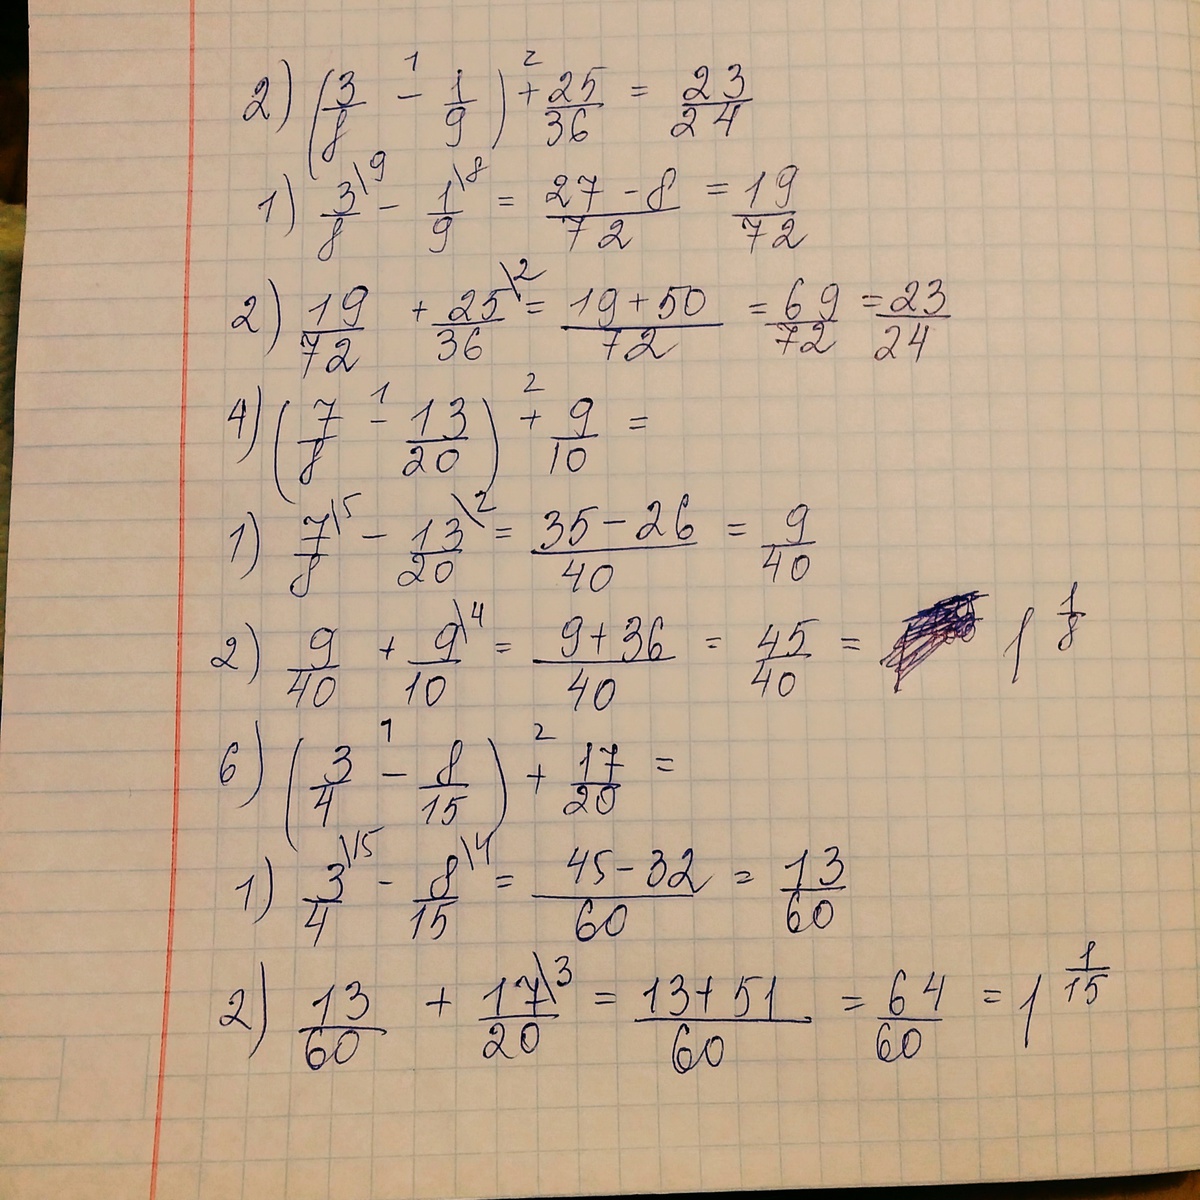 2) (3/8 -¹ 1/9) +² 25/36 = 23/24
1) 3/8\9 - 1/9\8 = (27 - 8)/72 = 19/72
2) 19/72 + 25/36\2 = (19 + 50)/72 = 69/72 = 23/24
4) (7/8 -¹ 13/20) +² 9/10 =
1) 7/8\5 - 13/20\2 = (35 - 26)/40 = 9/40
2) 9/40 + 9/10\4 = (9 + 36)/40 = 45/40 = 1 1/8
6) (3/4 -¹ 8/15) +² 17/20 =
1) 3/4\15 - 8/15\4 = (45 - 32)/60 = 13/60
2) 13/60 + 17/20\3 = (13 + 51)/60 = 64/60 = 1 1/15